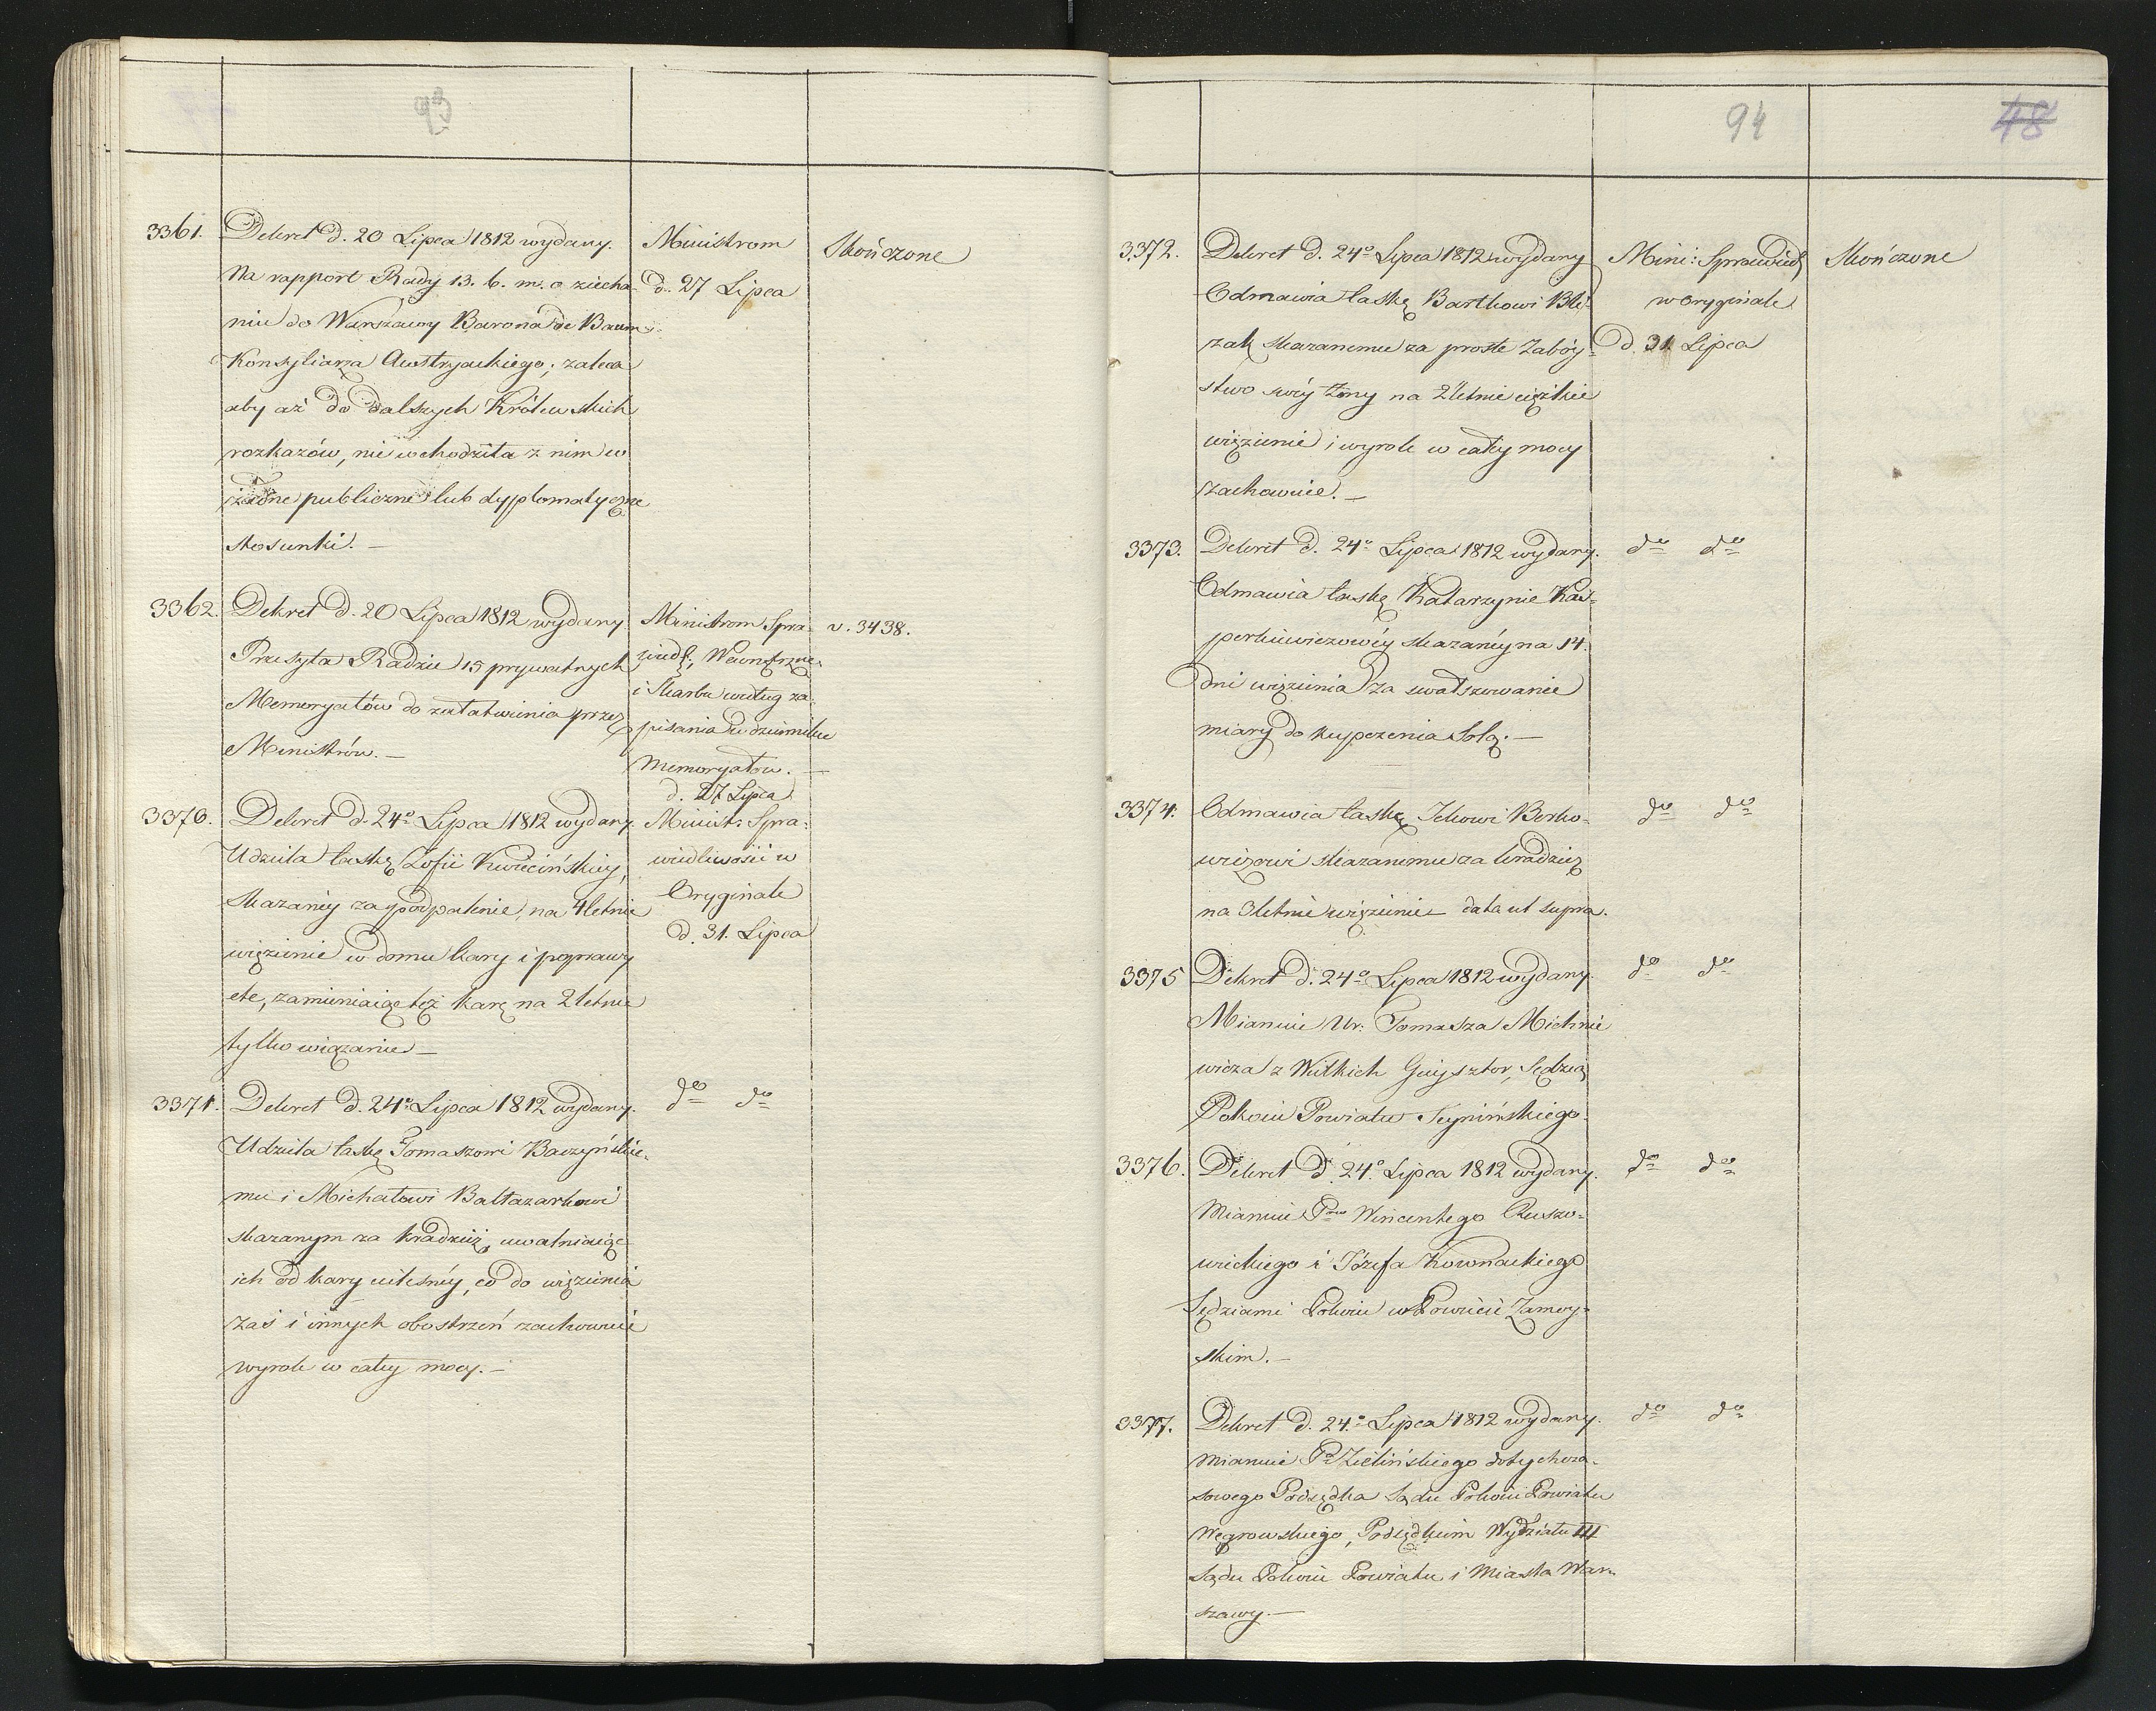 93
3361. Dekret d. 20 Lipca 1812 wydany.
Na rapport Rady 13. b. m. o ziecha-
niu do Warszawy Barona de Baum
Konsyliarza Austryackiego; zaleca
aby aż do dalszych Królewskich
rozkazów, nie wchodziła z nim w
żadne publiczne lub dyplomatyczne
stosunki. —
Ministrom
d. 27 Lipca
Skończone
3362. Dekret d. 20 Lipca 1812 wydany.
Przesyła Radzie 15 prywatnych
Memoryałów do załatwienia przez
Ministrów. —
Ministrom Spra-
wiedl., Wewnętrzne.
i Skarbu według za-
pisania w dzienniku
Memoryałów. —
d. 27 Lipca
v. 3438.
3370. Dekret d. 24º Lipca 1812 wydany.
Udziela łaskę Zofii Kwiecińskiey,
skazaney za podpalenie, na 4letnie
więzienie w domu kary i poprawy
etc, zamieniaiąc też karę na 2letnie
tylko więzienie —
Minist: Spra-
wiedliwości w
Oryginale
d. 31. Lipca
3371. Dekret d. 24º Lipca 1812 wydany.
Udziela łaskę Tomaszowi Baczyńskie-
mu i Michałowi Baltazarkowi
skazanym za kradzież, uwalniaiąc
ich od kary cielesnéy, co do więzienia
zaś i innych obostrzeń zachowuie
wyrok w całey mocy. —
dº dº
94
48
3372. Dekret d. 24º Lipca 1812 wydany
Odmawia łaskę Bartkowi Blé-
zak skazanemu za proste Zabóy-
stwo swéy żony na 2letnie ciężkie
więzienie i wyrok w całey mocy
zachowuie. —
Mini: Sprawiedl
w Oryginale
d. 31. Lipca
Skończone
3373. Dekret d. 24º Lipca 1812 wydany.
Odmawia łaskę Katarzynie Kas-
perkiewiczowéy skazanéy na 14.
dni więzienia za sfałszowanie
miary do kupczenia Solą. —
dº dº
3374. Odmawia łaskę Ickowi Berko-
wiczowi skazanemu za kradzież
na 3letnie więzienie data ut supra.
dº dº
3375 Dekret d. 24º Lipca 1812 wydany.
Mianuie Ur: Tomasza Michnie
wicza z Wilkich Giejsztor, Sędzią
Pokoiu Powiatu Seynińskiego.
dº dº
3376. Dekret d. 24º Lipca 1812 wydany.
Mianuie Pow Wincentego Ruszo-
wickiego i Józefa Kownackiego
Sędziami Pokoiu w Powiecie Zamoy-
skim. —
dº dº
3377. Dekret d. 24º Lipca 1812 wydany.
mianuie Pa Zielińskiego dotychcza-
sowego Podsędka Sądu Pokoiu Powiatu
Węgrowskiego, Podsędkiem Wydziału III
Sądu Pokoiu Powiatu i Miasta War-
szawy. —
dº dº